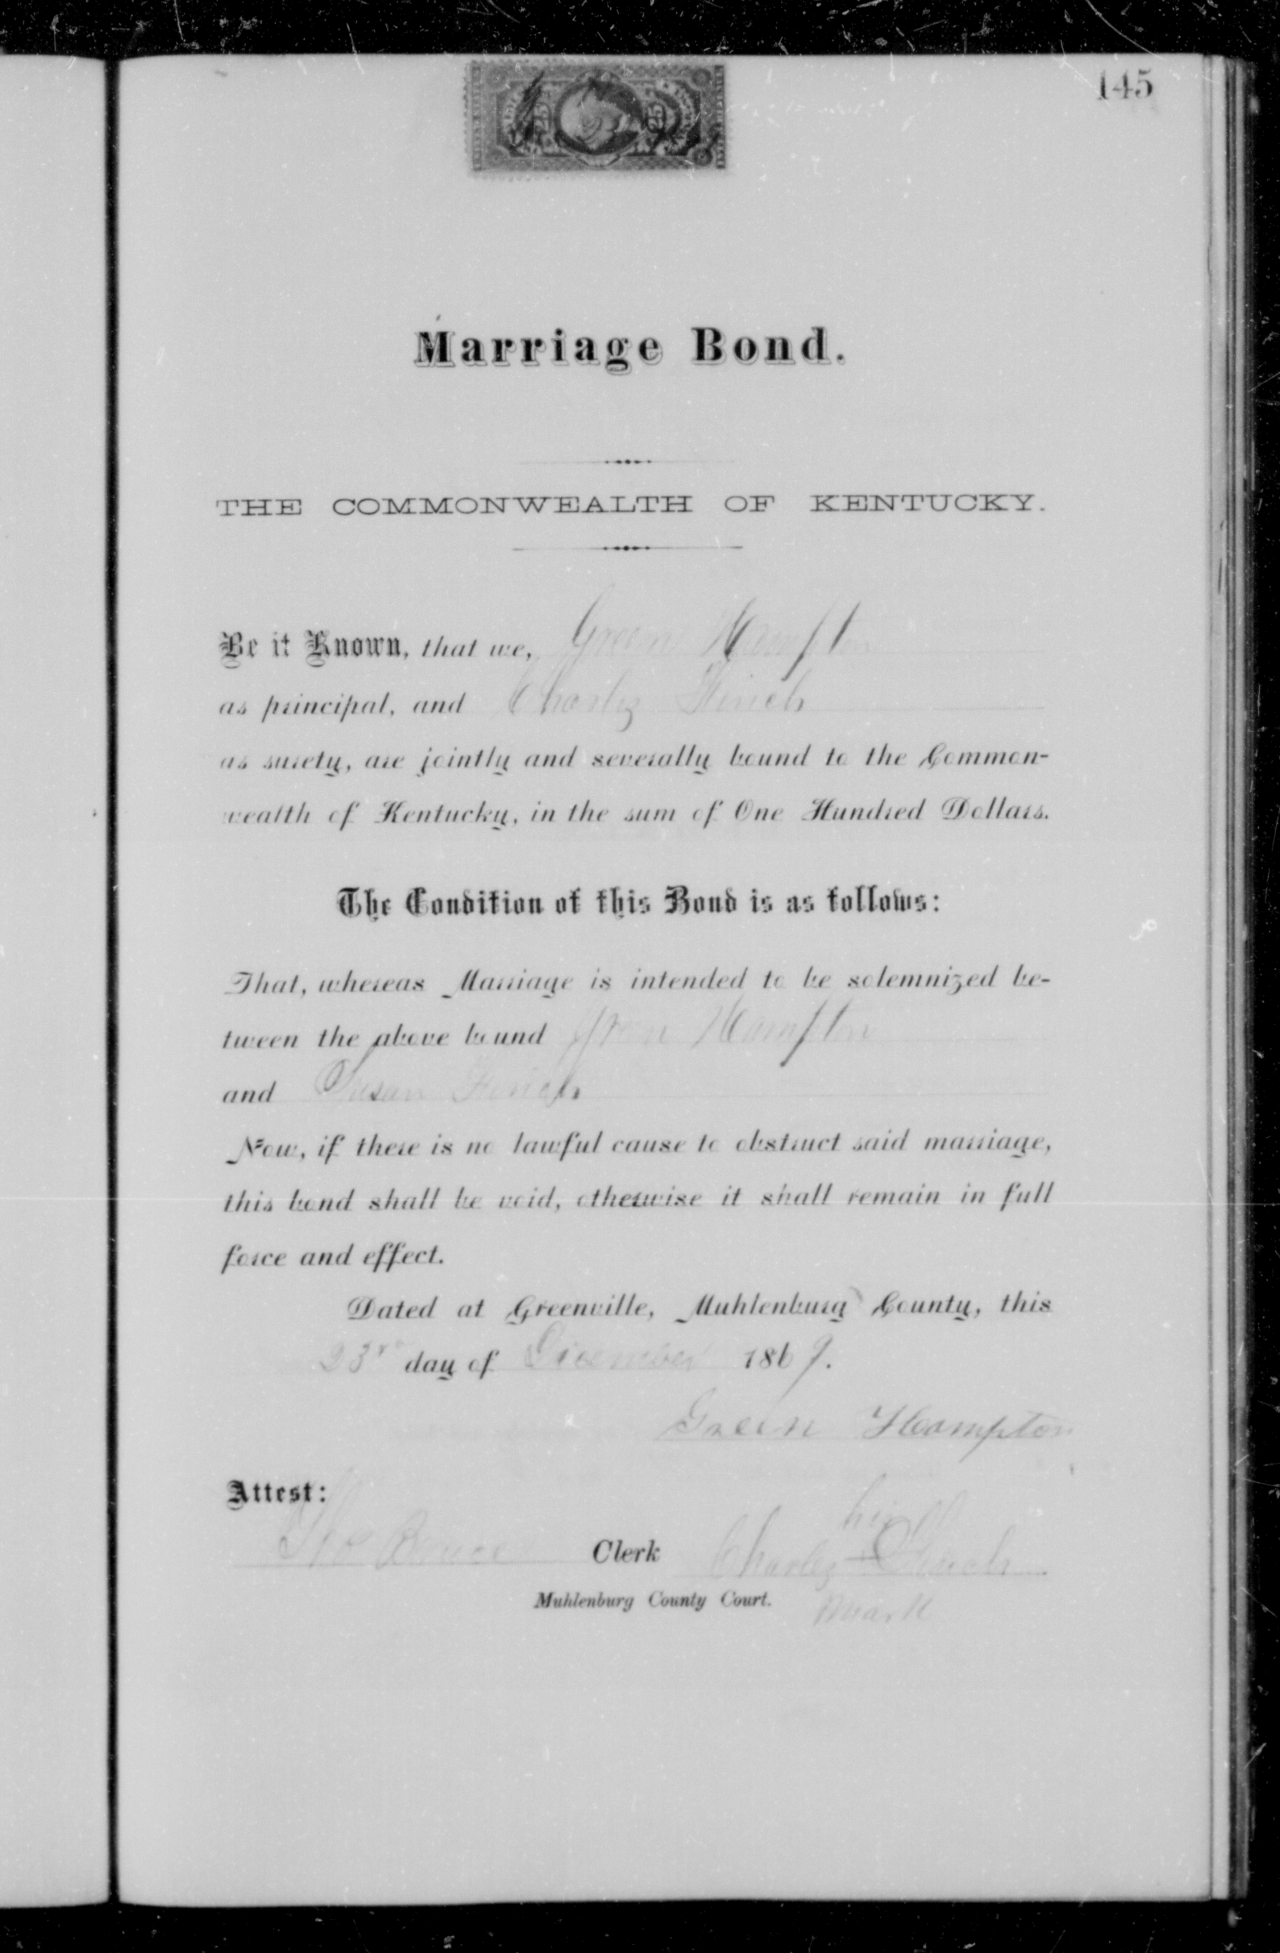 145
25 25
Marriage Bond.
THE COMMONWEALTH OF KENTUCKY.
Be it Known, that we, Green Hampton
as principal, and Charley Finch
as surety, are jointly and severally bound to the Common-
wealth of Kentucky, in the sum of One Hundred Dollars.
The Condition of this Bond is as follows:
That, whereas Marriage is intended to be solemnized be-
tween the above bound Green Hampton
and Susan Finch
Now, if there is no lawful cause to obstruct said marriage,
this bond shall be void, otherwise it shall remain in full
force and effect.
Dated at Greenville, Muhlenburg County, this
23rd day of December 1869.
Green Hampton
Attest:
his
Clerk Charley + Finch
Muhlenburg County Court. mark